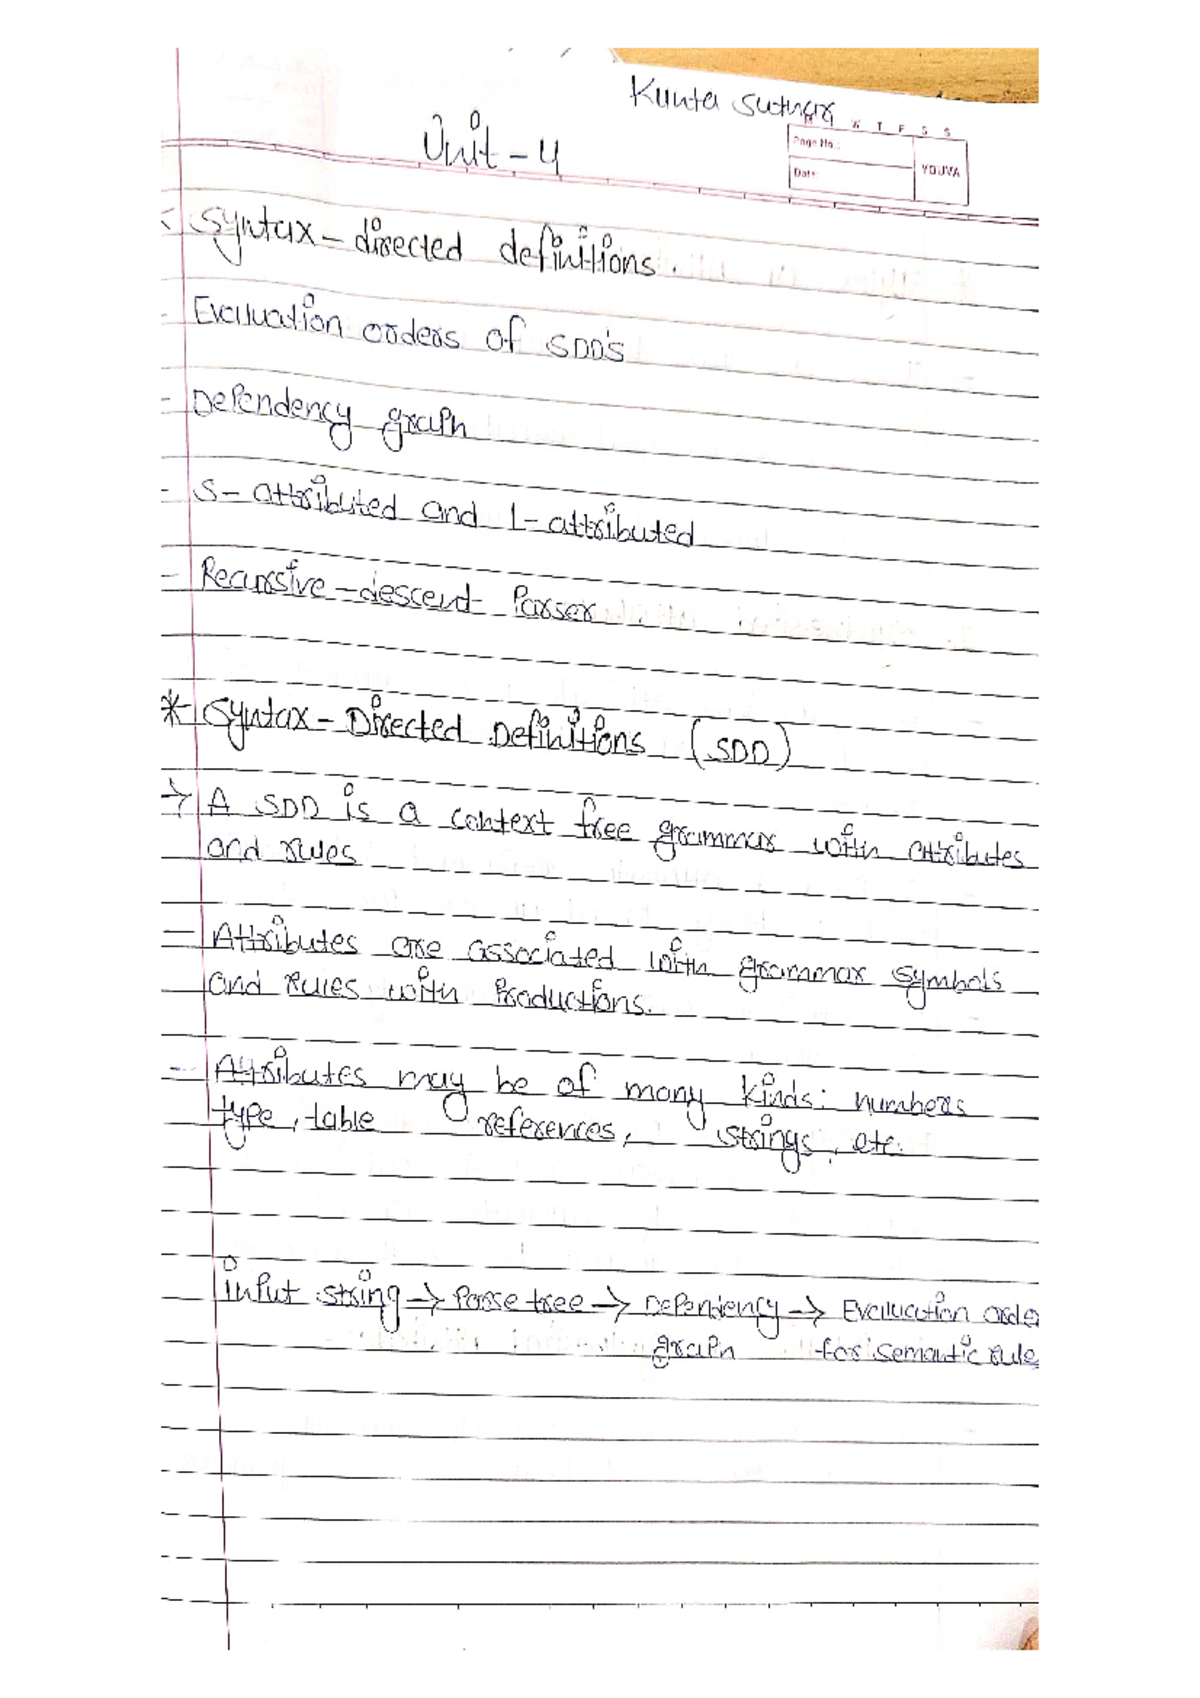 Kunta Suthar
M W T F S S
Page No.:
Date:
YOUVA
Unit - 4
Syntax - directed definitions.
- Evaluation orders of SDD's
- Dependency graph
- S - attributed and L - attributed
- Recursive - descend Parser
* Syntax - Directed Definitions (SDD)
→ A SDD is a context free grammar with attributes
and rules
- Attributes are associated with grammar symbols
and Rules with Productions.
- Attributes may be of many kinds: numbers
type, table references, strings, etc.
input string → Parse tree → Dependency → Evaluation order
graph for semantic rule